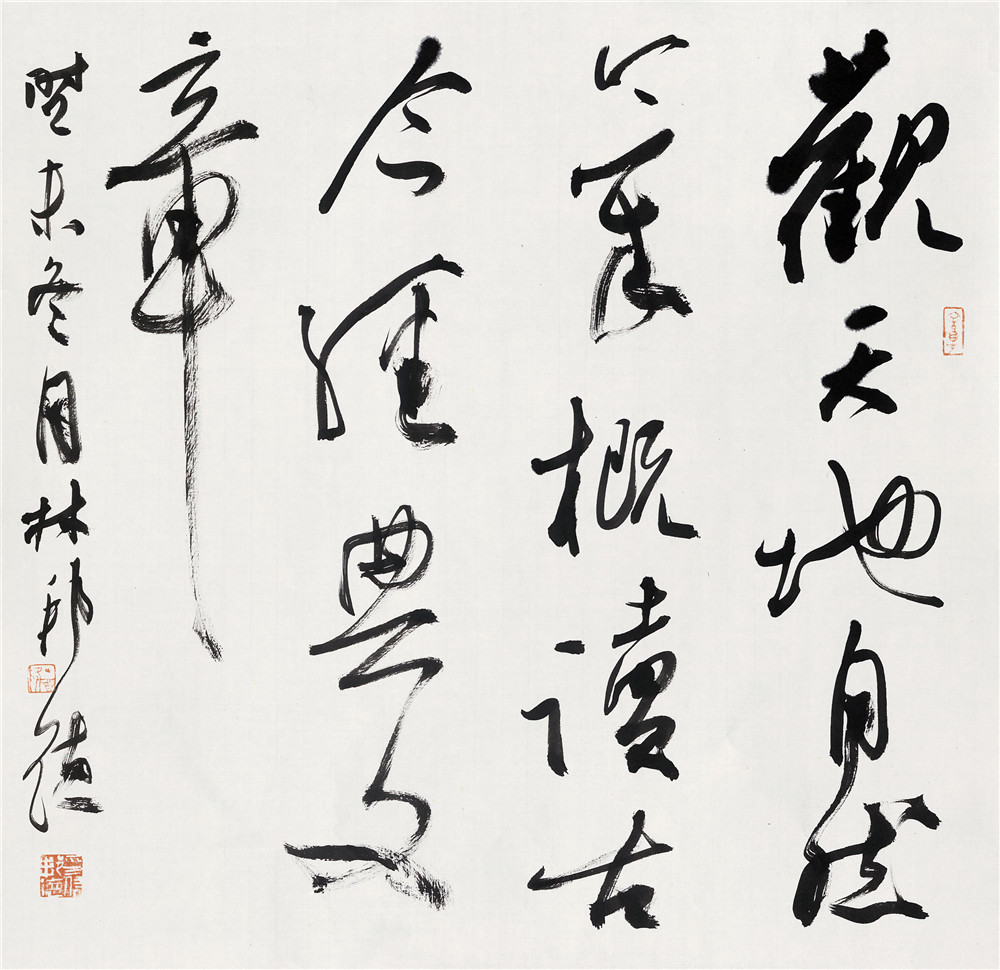 觀天地自然
氣概讀古
今經典文
章
癸未冬月林邦德